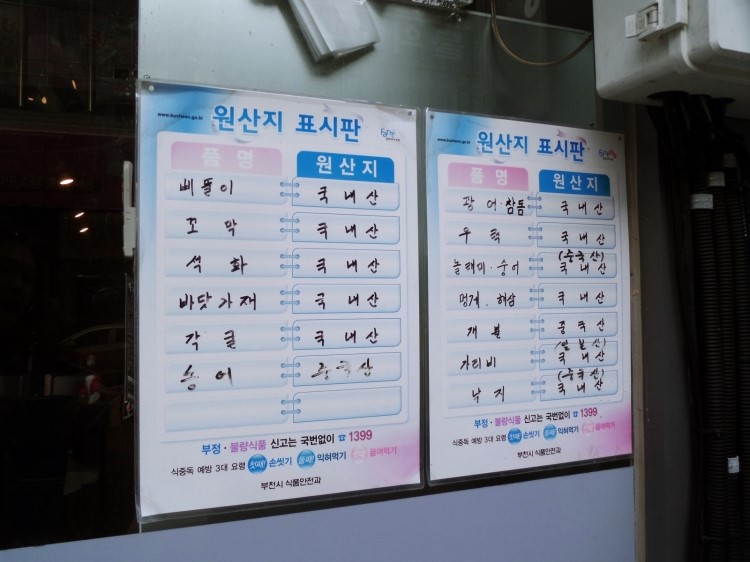 www.bucheon.go.kr 원산지 표시판
품명 원산지
삐뚤이 국내산
꼬막 국내산
석화 국내산
바닷가재 국내산
각굴 국내산
송어 중국산
부정·불량식품 신고는 국번없이 ☎ 1399
식중독 예방 3대 요령 첫째! 손씻기 둘째! 익혀먹기 끓여먹기
부천시 식품안전과
원산지 표시판
품명 원산지
광어·참돔 국내산
우럭 국내산
놀래미·숭어 (중국산) 국내산
멍게.해삼 국내산
개불 중국산
가리비 (일본산) 국내산
낙지 (중국산) 국내산
부정·불량식품 신고는 국번없이 ☎ 1399
식중독 예방 3대 요령 첫째! 손씻기 둘째! 익혀먹기 끓여먹기
부천시 식품안전과